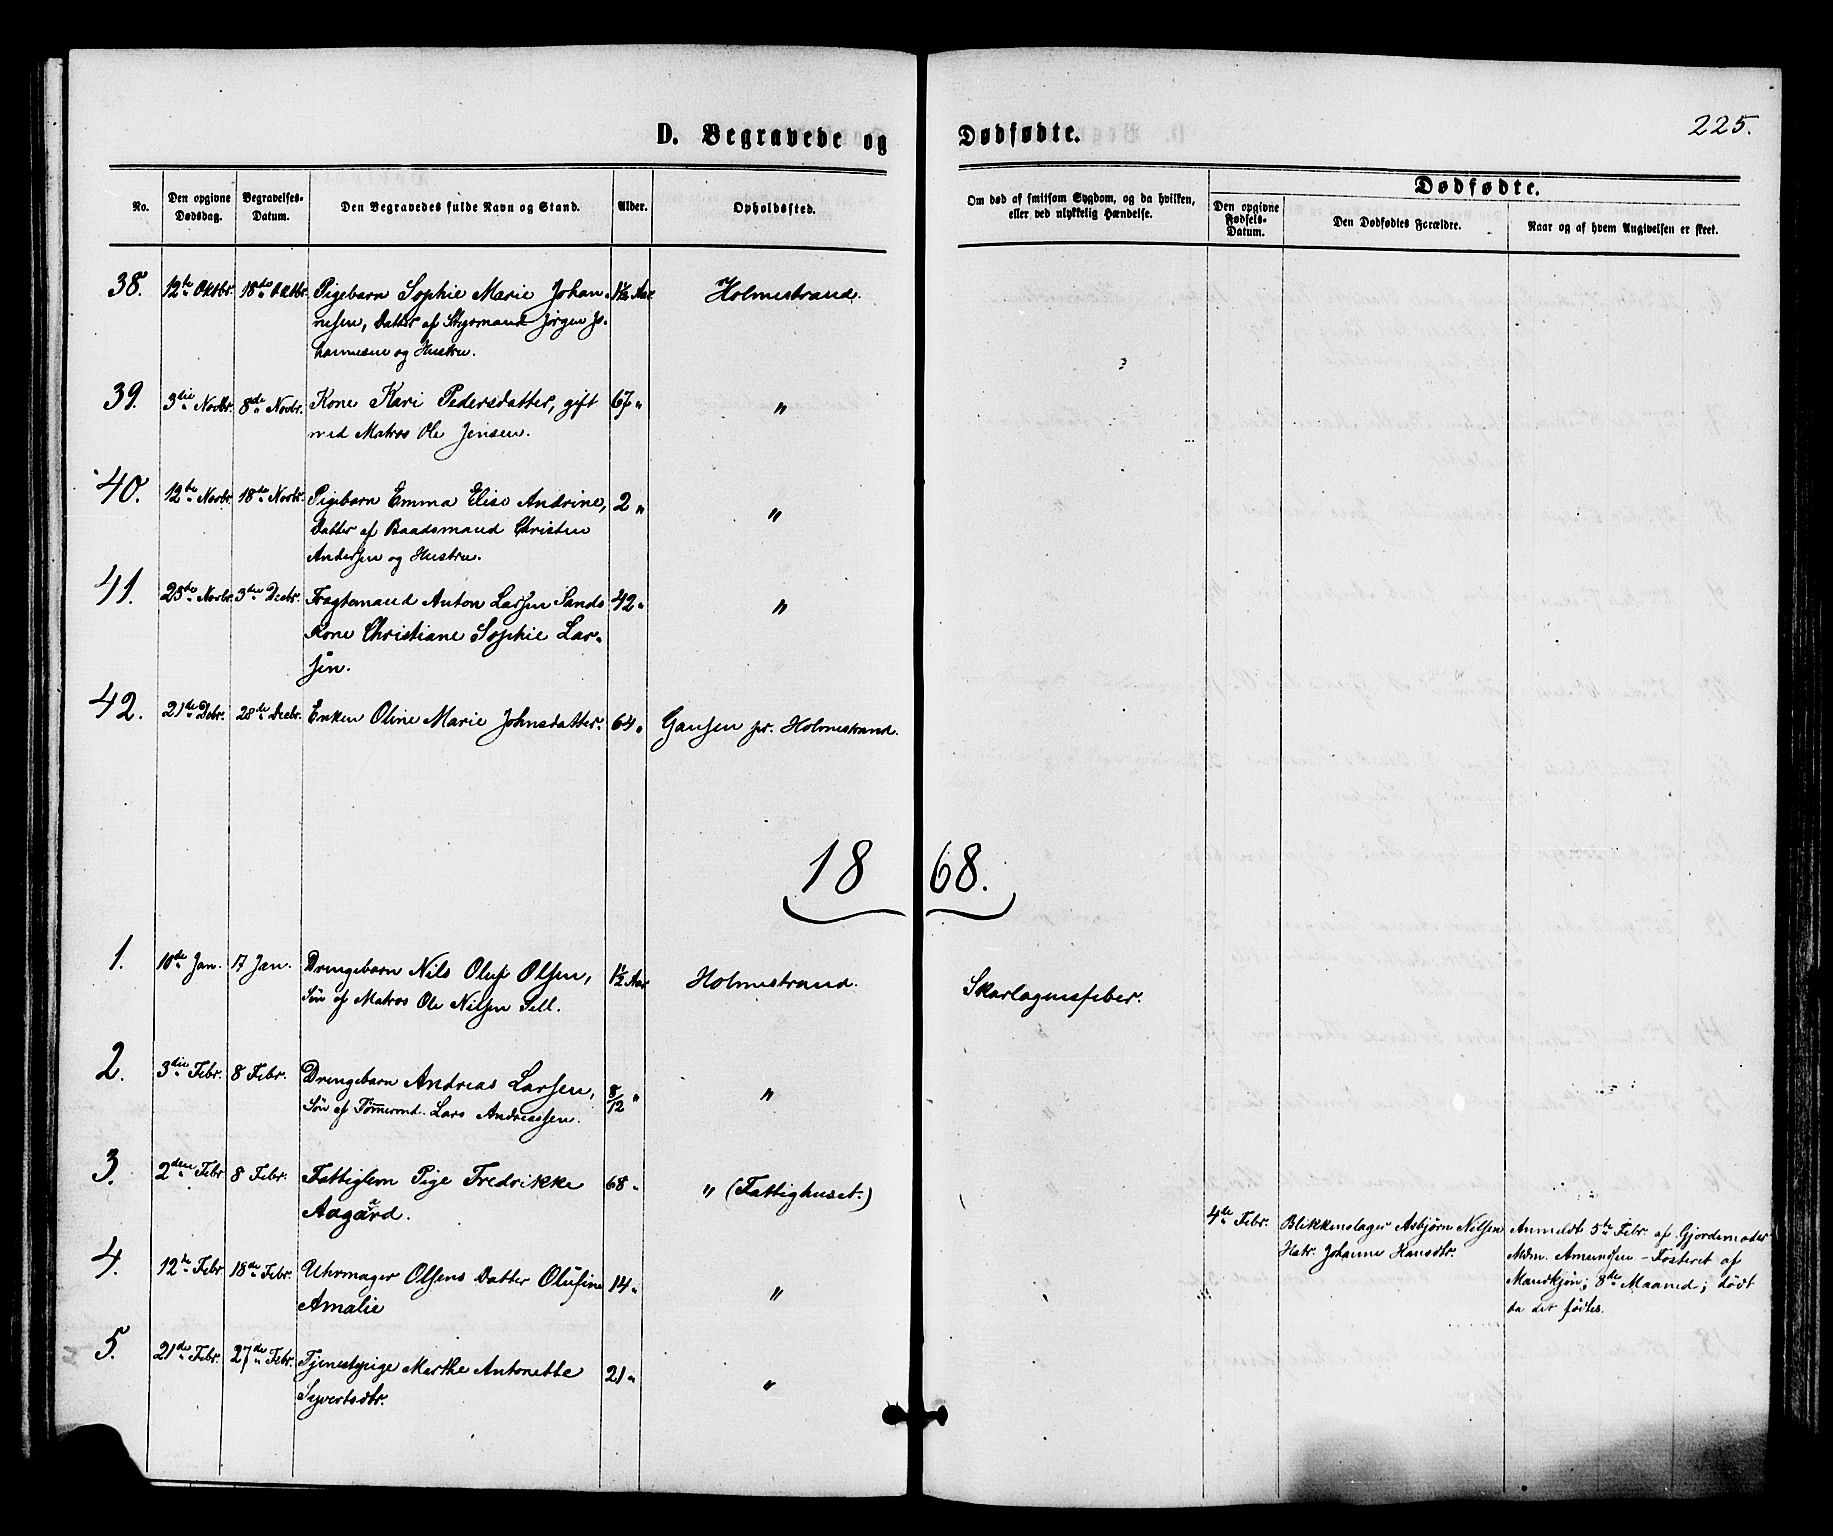 225.
D. Begravede og Dødfødte.
No.
Den opgivne Dødsdag.
Begravelses-Datum.
Den Begravedes fulde Navn og Stand.
Alder.
Opholdssted.
Om død af smitsom Sygdom, og da hvilken,
eller ved ulykkelig Hændelse.
Dødfødte.
Den opgivne Fødsels-Datum.
Den Dødfødtes Forældre.
Naar og af hvem Angivelsen er skeet.
38. 12te Oktbr. 18de Oktbr. Pigebarn Sophie Marie Johan- 1½ Aar Holmestrand.
nesen, Datter af Styrmand Jørgen Jo-
hannesen og Hustru.
39. 3die Novbr. 8de Novbr. Kone Kari Pedersdatter, gift 67 " "
med Matros Ole Jensen.
40. 12te Novbr. 18de Novbr. Pigebarn Emma Elise Andrine, 2 " "
Datter af Baadsmand Christen
Andersen og Hustru.
41. 25de Novbr. 3die Decbr. Fragtemand Anton Larsen Sands 42 " "
Kone Christiane Sophie Lar-
sen.
42. 21de Debr. 28de Decbr. Enken Oline Marie Johnsdatter. 64 " Gausen pr. Holmestrand.
1868.
1. 10de Jan. 17 Jan. Drengebarn Nils Oluf Olsen, 1½ Aar Holmestrand. Skarlagensfeber.
Søn af Matros Ole Nilsen Sell.
2. 3die Febr. 8 Febr. Drengebarn Andreas Larsen, 8/12 " "
Søn af Tømermd. Lars Andreassen.
3. 2den Febr. 8 Febr. Fattiglem Pige Fredrikke 68 " " (Fattighuset.)
Aagaard.
4te Febr. Blikkenslager Asbjørn Nilsen Anmeldt 5te Febr. af Gjordemoder
Hstr. Johanne Hansdtr. Mdm. Amundsen – Fosteret af
Mandkjøn; 8de Maaned; dødt
da det fødtes.
4. 12te Febr. 18de Febr. Uhrmager Olsens Datter Olufine 14 " "
Amalie
5. 21de Febr. 27de Febr. Tjenestepige Marthe Antonette 21 " "
Syvertsdtr.